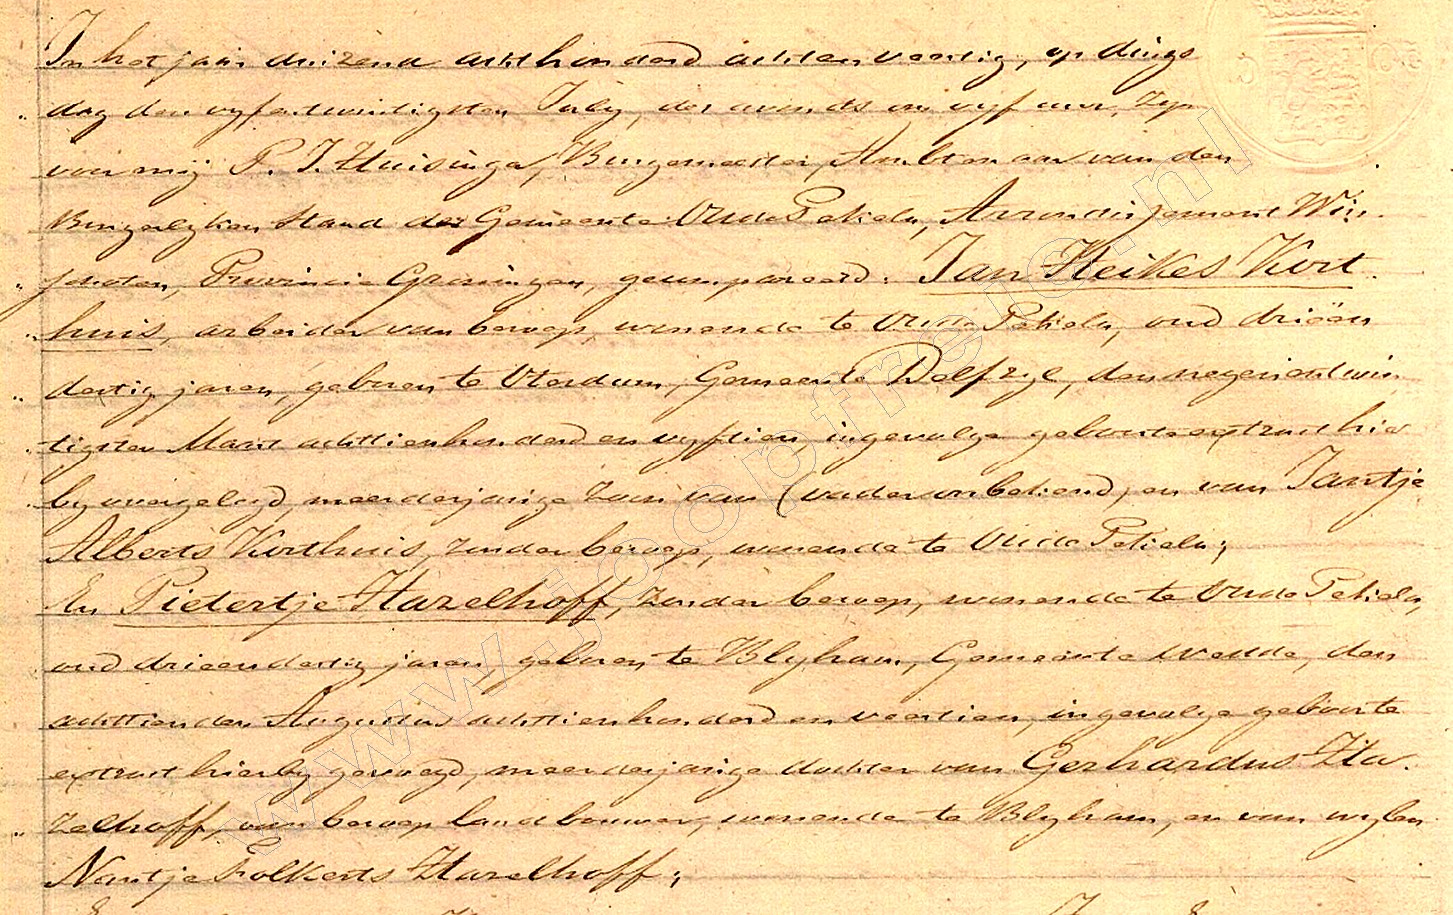 In het jaar duizend achthonderd achtenveertig, op dings
dag den vyfentwintigsten July, des avonds om vyf uur, zyn
voor mij P. J. Huisinga, Burgemeester, Ambtenaar van den
Burgerlyken Stand der Gemeente Oude Pekela, Arrondissement Win
schoten, Provincie Groningen, gecompareerd: Jan Heikes Kort
huis, arbeider van beroep, wonende te Oude Pekela, oud drieën
dertig jaren, geboren te Uterdum, Gemeente Delfzyl, den negenentwin
tigsten Maart achttienhonderd en vyftien, ingevolge geboorte extract hier
by overgelegd, meerderjarige zoon van (vader onbekend, en van Jantje
Alberts Korthuis, zonder beroep, wonende te Oude Pekela;
En Pietertje Hazelhoff, zonder beroep, wonende te Oude Pekela,
oud drieendertig jaren, geboren te Blyham, Gemeente Wedde, den
achttienden Augustus achttienhonderd en veertien, ingevolge geboorte
extract hierby gevoegd, meerderjarige dochter van Gerhardus Ha
zelhoff, van beroep landbouwer, wonende te Blyham, en van wylen
Nantje Folkerts Hazelhoff;
www.jcopfrene.nl